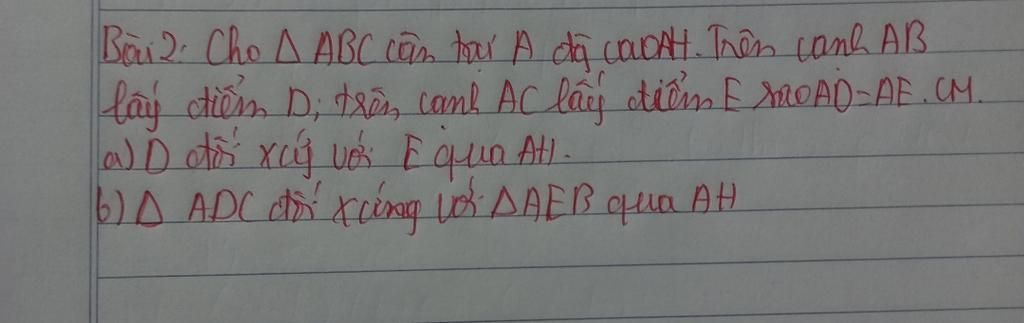 Bài 2: Cho Δ ABC cân tại A đg cao AH. Trên cạnh AB
lấy điểm D, trên cạnh AC lấy điểm E sao AD=AE. CM.
a) D đối xứg với E qua AH.
b) Δ ADC đối xứng với ΔAEB qua AH